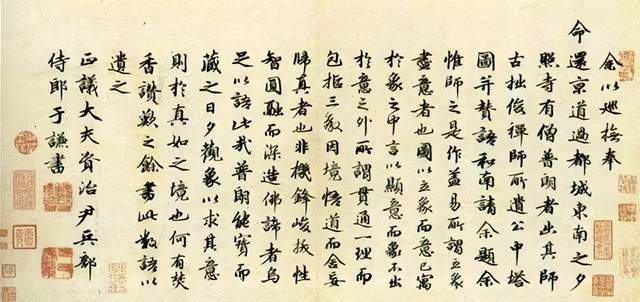 余以巡撫奉
命還京道過都城東南之夕
照寺有僧普朗者出其師
古拙俊禪師所遺公中塔
圖并贊語和南請余題余
惟師之是作蓋易所謂立象
盡意者也圖以立象而意已寓
於象之中言以顯意而象不出
於意之外所謂貫通一理而
包括三教因境悟道而舍妄
歸真者也非機鋒峻拔性
智圓融而深造佛諦者烏
足以語此我普朗能寶而
藏之日夕觀象以求其意
則於真如之境也何有焚
香讚歎之餘書此數語以
遺之
正議大夫資治尹兵部
侍郎于謙書